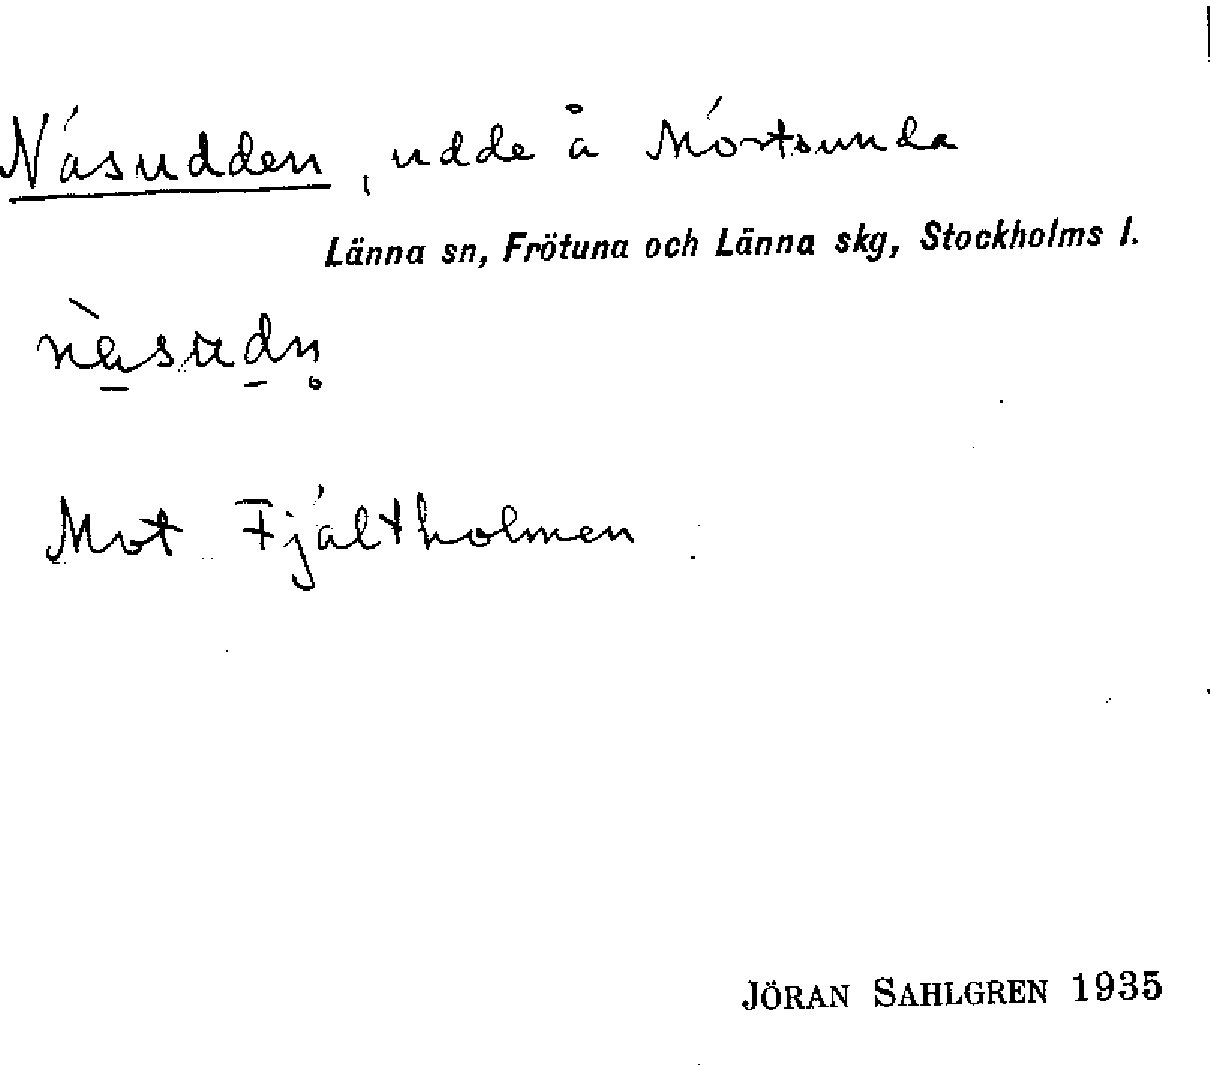 Näsudden, udde å Mörtsunda
Länna sn, Frötuna och Länna skg, Stockholms l.
Mot Fjältholmen
JÖRAN SAHLGREN 1935